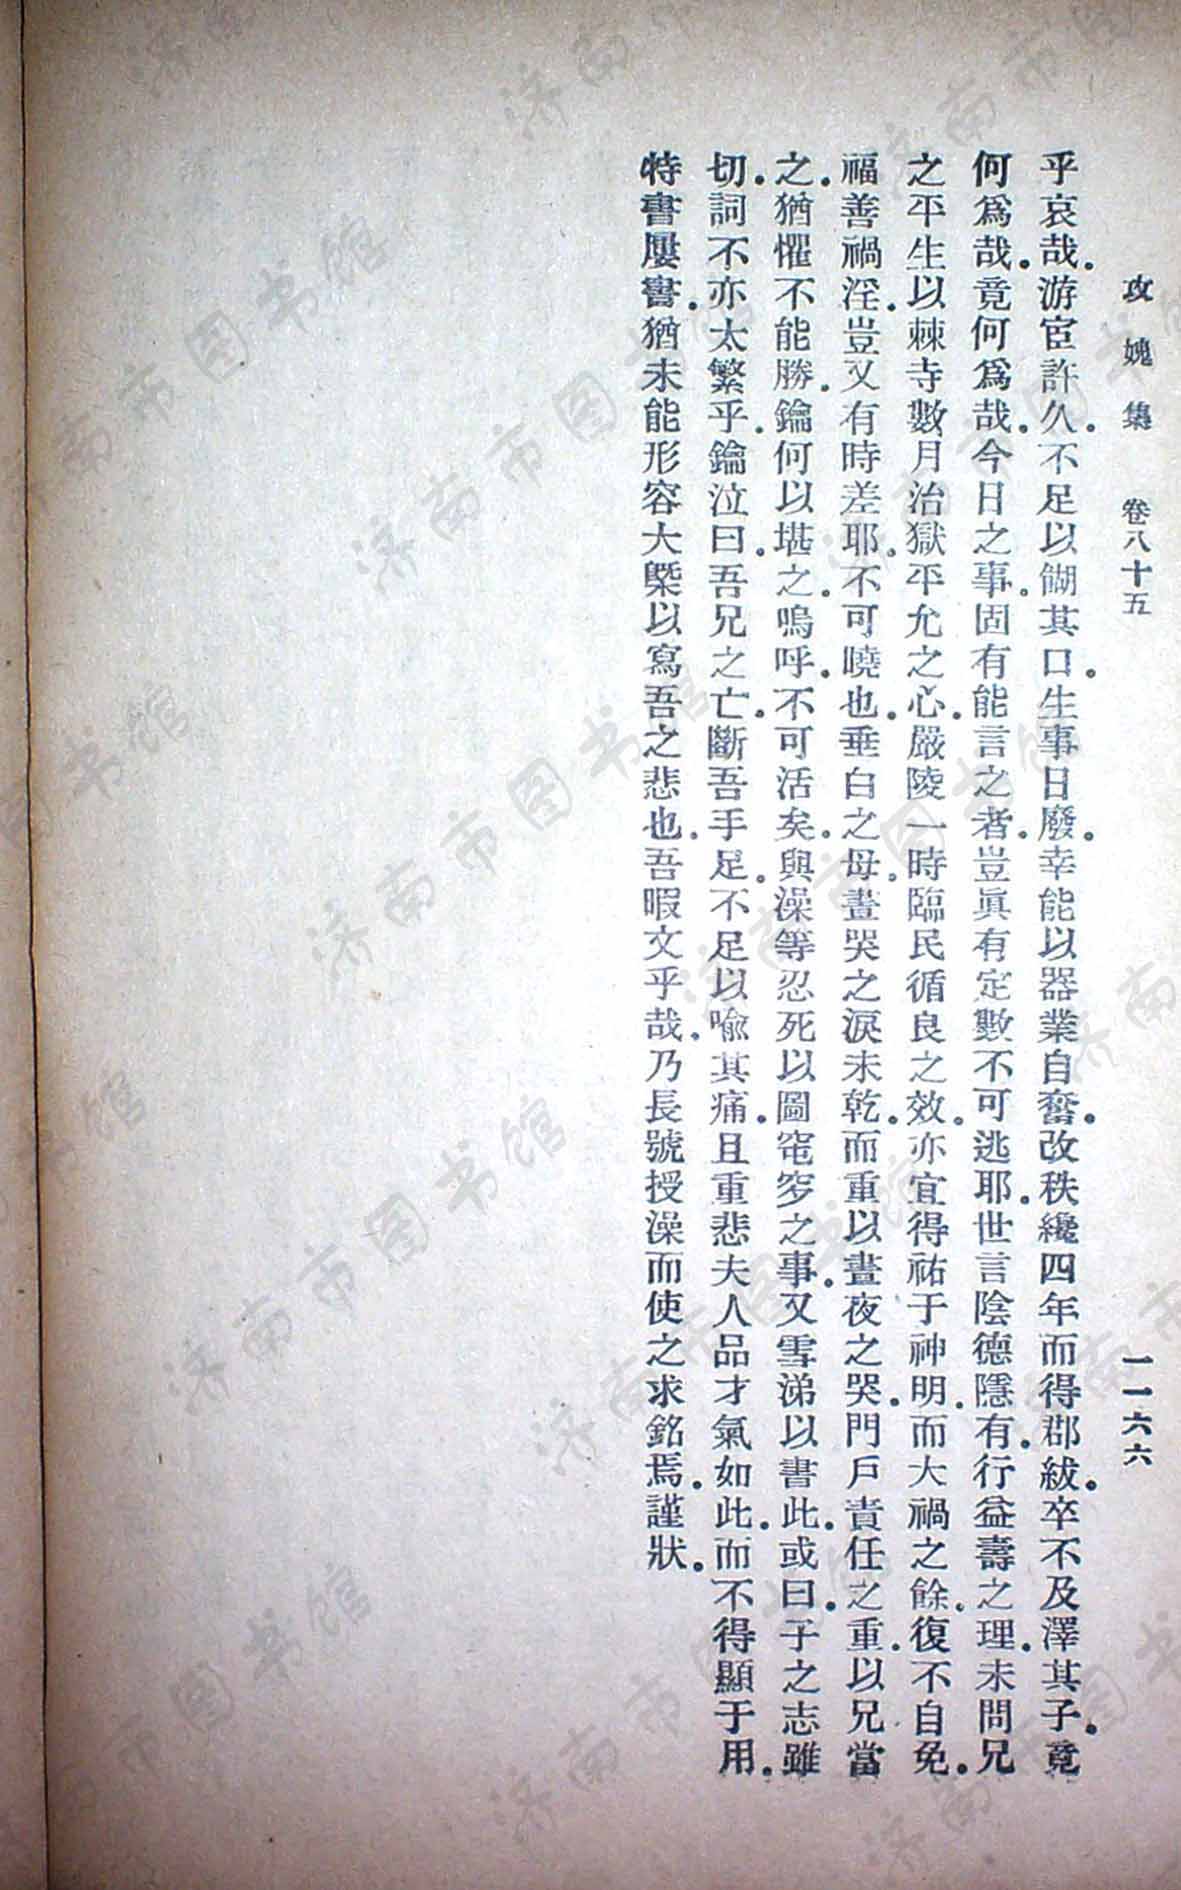 攻媿集 卷八十五 一一六六
乎哀哉。游宦許久。不足以餬其口。生事日廢。幸能以器業自奮。改秩纔四年而得郡紱。卒不及澤其子。竟
何爲哉。竟何爲哉。今日之事。固有能言之者。豈眞有定數不可逃耶。世言陰德隱有。行益壽之理。未問兄
之平生。以棘寺數月治獄平允之心。嚴陵一時臨民循良之效。亦宜得祐于神明。而大禍之餘。復不自免。
福善禍淫。豈又有時差耶。不可曉也。垂白之母。晝哭之淚未乾。而重以晝夜之哭。門戶責任之重。以兄當
之。猶懼不能勝。鑰何以堪之。嗚呼。不可活矣。與澡等忍死以圖窀穸之事。又雪涕以書此。或曰。子之志雖
切。詞不亦太繁乎。鑰泣曰。吾兄之亡。斷吾手足。不足以喩其痛。且重悲夫人品才氣如此。而不得顯于用。
特書屢書。猶未能形容大槩以寫吾之悲也。吾暇文乎哉。乃長號授澡而使之求銘焉。謹狀。
济南市图书馆